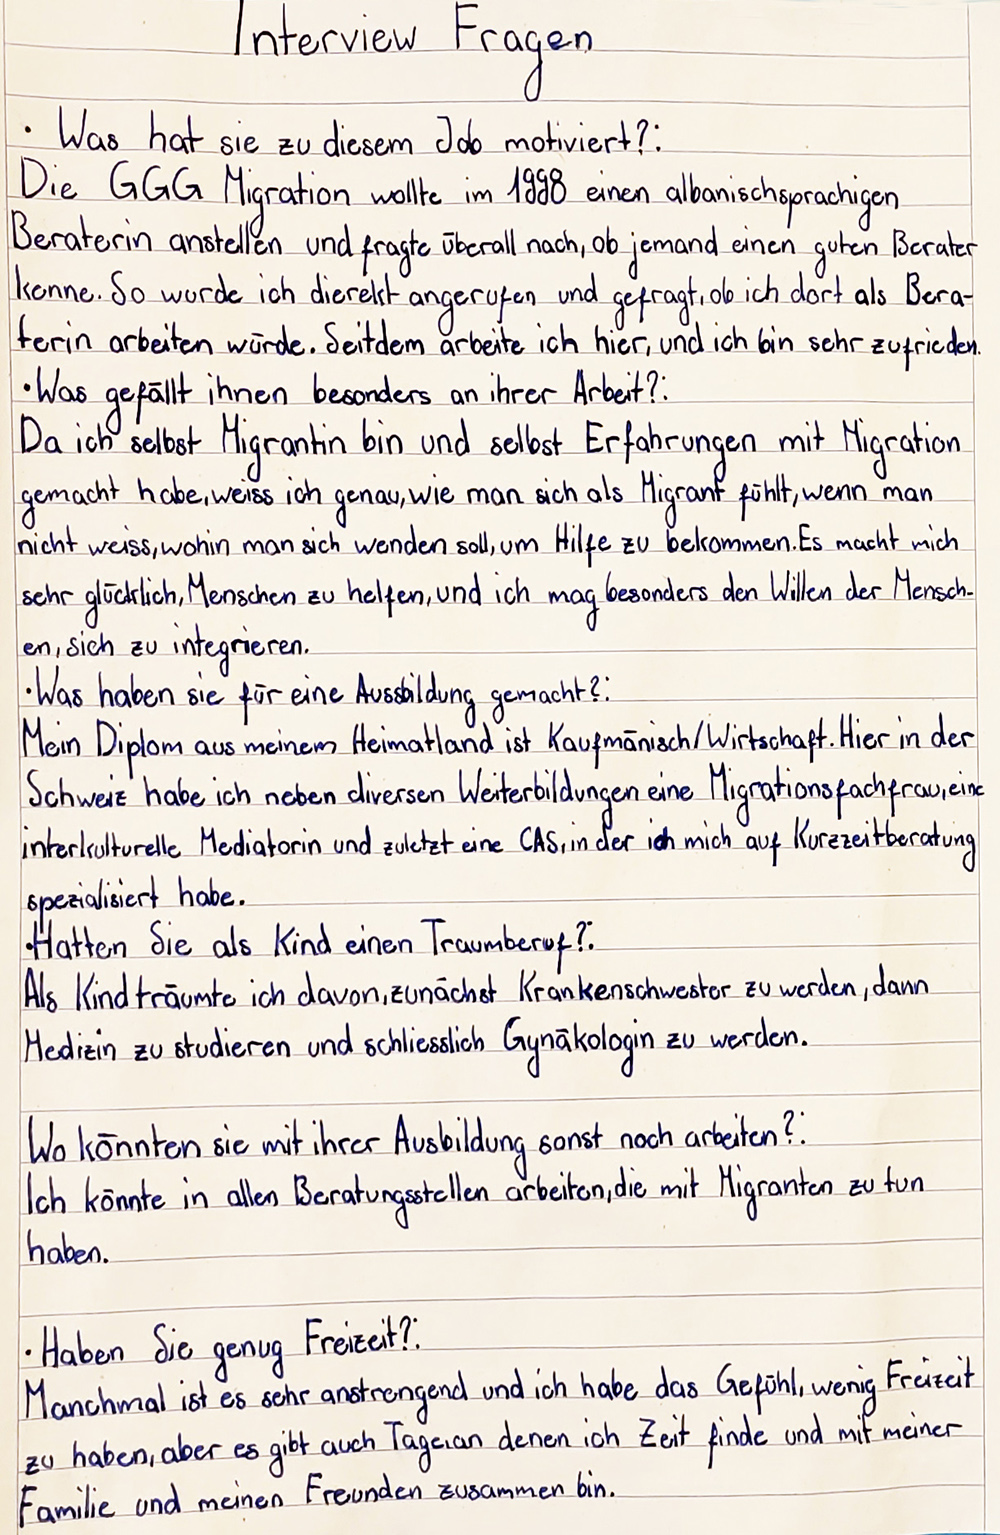 Interview Fragen
· Was hat sie zu diesem Job motiviert?:
Die GGG Migration wollte im 1998 einen albanischsprachigen
Beraterin anstellen und fragte überall nach, ob jemand einen guten Berater
kenne. So wurde ich dierekt angerufen und gefragt, ob ich dort als Bera-
terin arbeiten würde. Seitdem arbeite ich hier, und ich bin sehr zufrieden.
· Was gefällt ihnen besonders an ihrer Arbeit?:
Da ich selbst Migrantin bin und selbst Erfahrungen mit Migration
gemacht habe, weiss ich genau, wie man sich als Migrant fühlt, wenn man
nicht weiss, wohin man sich wenden soll, um Hilfe zu bekommen. Es macht mich
sehr glücklich, Menschen zu helfen, und ich mag besonders den Willen der Mensch-
en, sich zu integrieren.
· Was haben sie für eine Aussbildung gemacht?:
Mein Diplom aus meinem Heimatland ist Kaufmänisch/Wirtschaft. Hier in der
Schweiz habe ich neben diversen Weiterbildungen eine Migrationsfachfrau, eine
interkulturelle Mediatorin und zuletzt eine CAS, in der ich mich auf Kurzzeitberatung
spezialisiert habe.
· Hatten Sie als Kind einen Traumberuf?:
Als Kind träumte ich davon, zunächst Krankenschwester zu werden, dann
Medizin zu studieren und schliesslich Gynäkologin zu werden.
Wo könnten sie mit ihrer Ausbildung sonst noch arbeiten?:
Ich könnte in allen Beratungsstellen arbeiten, die mit Migranten zu tun
haben.
· Haben Sie genug Freizeit?:
Manchmal ist es sehr anstrengend und ich habe das Gefühl, wenig Freizeit
zu haben, aber es gibt auch Tage, an denen ich Zeit finde und mit meiner
Familie und meinen Freunden zusammen bin.